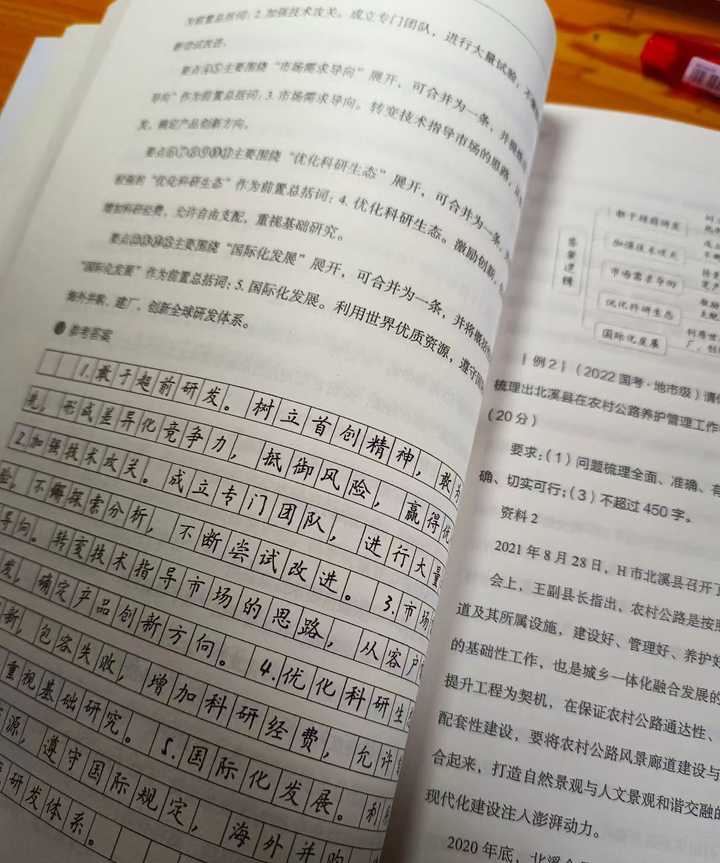 为前置总括词：2.加强技术攻关。成立专门团队，进行大量试验，不
断尝试改进。
要点④⑤主要围绕“市场需求导向”展开，可合并为一条，并
导向”作为前置总括词：3.市场需求导向。转变技术指导市场的思路，
发，确定产品创新方向。
主要围绕“优化科研生态”展开，可合并为一条，
“优化科研生态”作为前置总括词：4.优化科研生态。激励创新，
增加科研经费，允许自由支配，重视基础研究。
主要围绕“国际化发展”展开，可合并为一条，并将
“国际化发展”作为前置总括词：5.国际化发展。利用世界优质资源，遵守
海外并购、建厂，创新全球研发体系。
参考答案
1.敢于超前研发。树立首创精神，敢
先，形成差异化竞争力，抵御风险，赢得优
2.加强技术攻关。成立专门团队，进行大量
验，不懈探索分析，不断尝试改进。3.市场
导向。转变技术指导市场的思路，从客户
发，确定产品创新方向。4.优化科研生
新，包容失败，增加科研经费，允许
重视基础研究。5.国际化发展。利
源，遵守国际规定，海外并购
研发体系。
答案逻辑
敢于超前研发
加强技术攻关
市场需求导向
优化科研生态
国际化发展
例2｜（2022国考·地市级）请
梳理出北溪县在农村公路养护管理工作
（20分）
要求：（1）问题梳理全面、准确、有
确、切实可行；（3）不超过450字。
资料2
2021年8月28日，H市北溪县召开
会上，王副县长指出，农村公路是按照
道及其所属设施，建设好、管理好、养护好
的基础性工作，也是城乡一体化融合发展的
提升工程为契机，在保证农村公路通达性、
配套性建设，要将农村公路风景廊道建设与
合起来，打造自然景观与人文景观和谐交融的
现代化建设注入澎湃动力。
2020年底，北溪